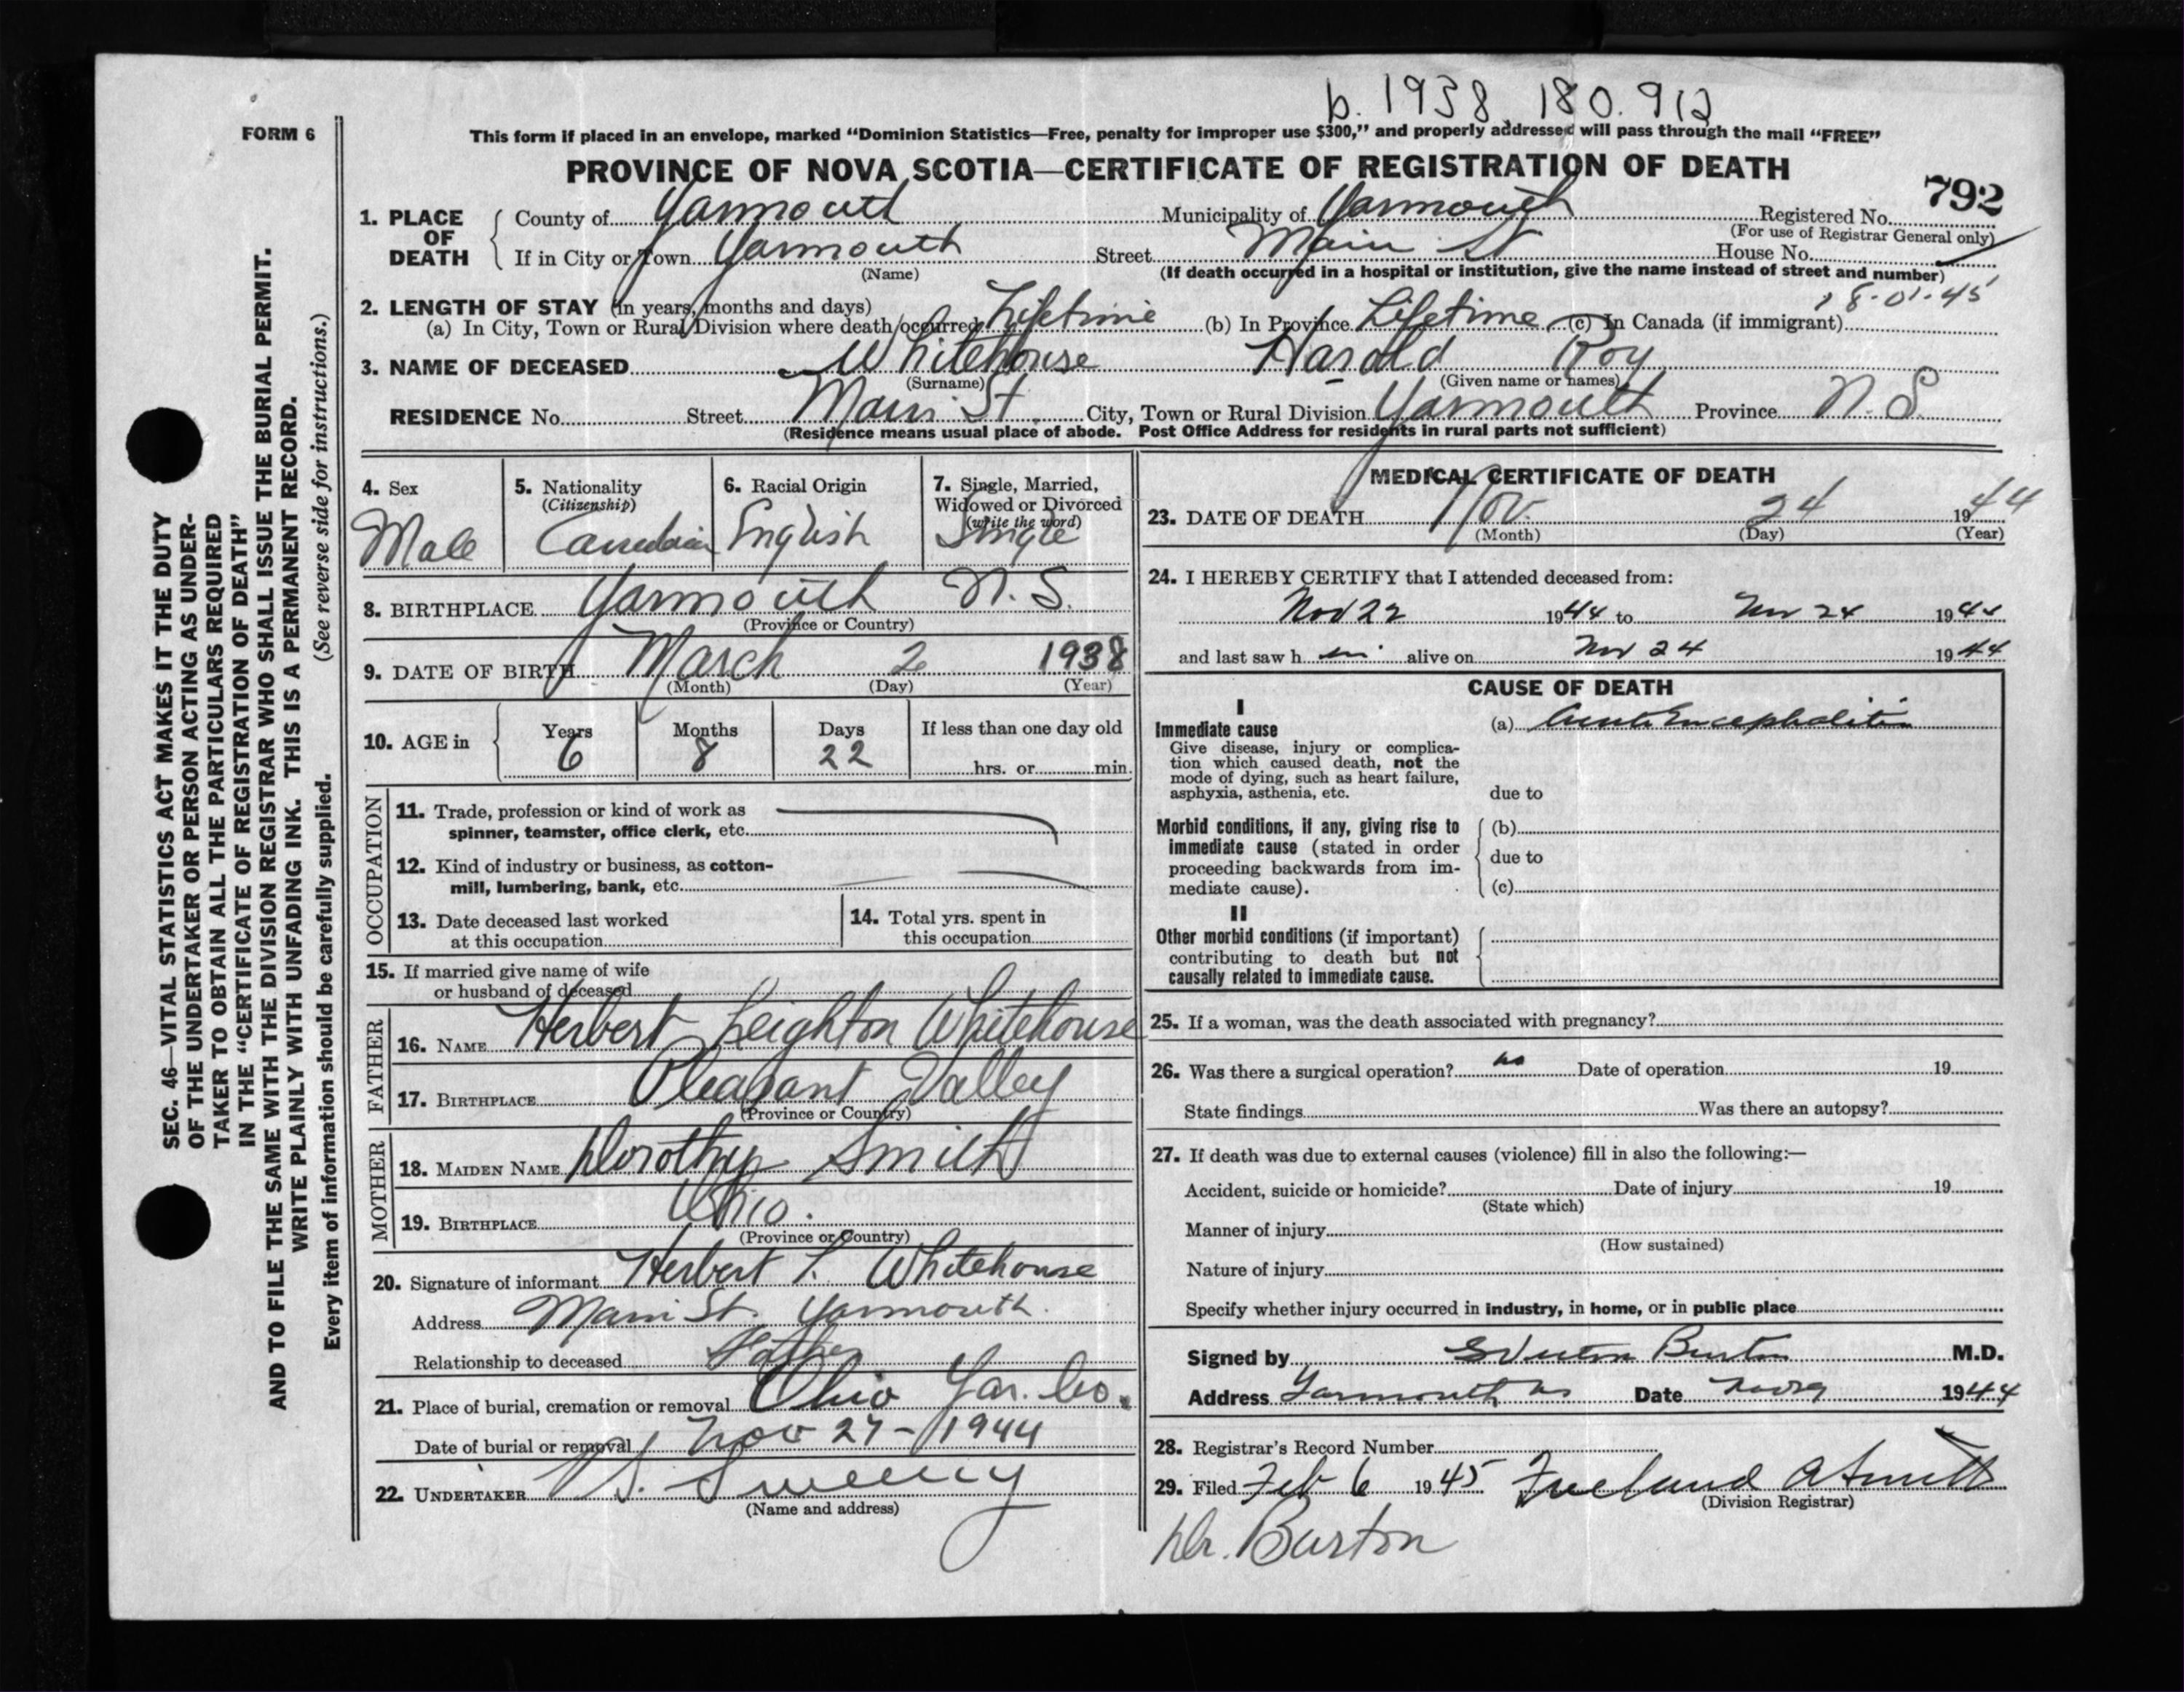 b. 1938. 180.912
FORM 6
This form if placed in an envelope, marked “Dominion Statistics—Free, penalty for improper use $300,” and properly addressed will pass through the mail “FREE”
PROVINCE OF NOVA SCOTIA—CERTIFICATE OF REGISTRATION OF DEATH
792
1. PLACE OF DEATH
County of Yarmouth Municipality of Yarmouth Registered No.
(For use of Registrar General only)
If in City or Town Yarmouth Street Main St House No.
(Name) (If death occurred in a hospital or institution, give the name instead of street and number)
18-01-45
2. LENGTH OF STAY (in years, months and days)
(a) In City, Town or Rural Division where death occurred Lifetime (b) In Province Lifetime (c) In Canada (if immigrant)
3. NAME OF DECEASED Whitehouse Harold Roy
(Surname) (Given name or names)
RESIDENCE No. Street Main St. City, Town or Rural Division Yarmouth Province N.S.
(Residence means usual place of abode. Post Office Address for residents in rural parts not sufficient)
4. Sex
Male
5. Nationality
(Citizenship)
Canadian
6. Racial Origin
English
7. Single, Married,
Widowed or Divorced
(write the word)
Single
8. BIRTHPLACE Yarmouth N.S.
(Province or Country)
9. DATE OF BIRTH March 2 1938
(Month) (Day) (Year)
10. AGE in
Years Months Days If less than one day old
6 8 22 hrs. or min.
OCCUPATION
11. Trade, profession or kind of work as
spinner, teamster, office clerk, etc.
12. Kind of industry or business, as cotton-
mill, lumbering, bank, etc.
13. Date deceased last worked
at this occupation
14. Total yrs. spent in
this occupation
15. If married give name of wife
or husband of deceased
FATHER
16. NAME Herbert Leighton Whitehouse
17. BIRTHPLACE Pleasant Valley
(Province or Country)
MOTHER
18. MAIDEN NAME Dorothy Smith
19. BIRTHPLACE Ohio.
(Province or Country)
20. Signature of informant Herbert L. Whitehouse
Address Main St. Yarmouth.
Relationship to deceased Father
21. Place of burial, cremation or removal Ohio Yar. Co.
Date of burial or removal Nov 27 - 1944
22. UNDERTAKER V.S. Sweeny
(Name and address)
MEDICAL CERTIFICATE OF DEATH
23. DATE OF DEATH Nov. 24 1944
(Month) (Day) (Year)
24. I HEREBY CERTIFY that I attended deceased from:
Nov 22 1944 to Nov 24 1944
and last saw h im alive on Nov 24 1944
CAUSE OF DEATH
I
Immediate cause (a) Acute Encephalitis
Give disease, injury or complica-
tion which caused death, not the
mode of dying, such as heart failure,
asphyxia, asthenia, etc.
due to
Morbid conditions, if any, giving rise to
immediate cause (stated in order
proceeding backwards from im-
mediate cause).
(b)
due to
(c)
II
Other morbid conditions (if important)
contributing to death but not
causally related to immediate cause.
25. If a woman, was the death associated with pregnancy?
26. Was there a surgical operation? no Date of operation 19
State findings Was there an autopsy?
27. If death was due to external causes (violence) fill in also the following:—
Accident, suicide or homicide? Date of injury 19
(State which)
Manner of injury
(How sustained)
Nature of injury
Specify whether injury occurred in industry, in home, or in public place
Signed by Burton M.D.
Address Yarmouth NS Date 1944
28. Registrar's Record Number
29. Filed Feb 6 1945
(Division Registrar)
Dr. Burton
SEC. 46—VITAL STATISTICS ACT MAKES IT THE DUTY
OF THE UNDERTAKER OR PERSON ACTING AS UNDER-
TAKER TO OBTAIN ALL THE PARTICULARS REQUIRED
IN THE “CERTIFICATE OF REGISTRATION OF DEATH”
AND TO FILE THE SAME WITH THE DIVISION REGISTRAR WHO SHALL ISSUE THE BURIAL PERMIT.
WRITE PLAINLY WITH UNFADING INK. THIS IS A PERMANENT RECORD.
(See reverse side for instructions.)
Every item of information should be carefully supplied.